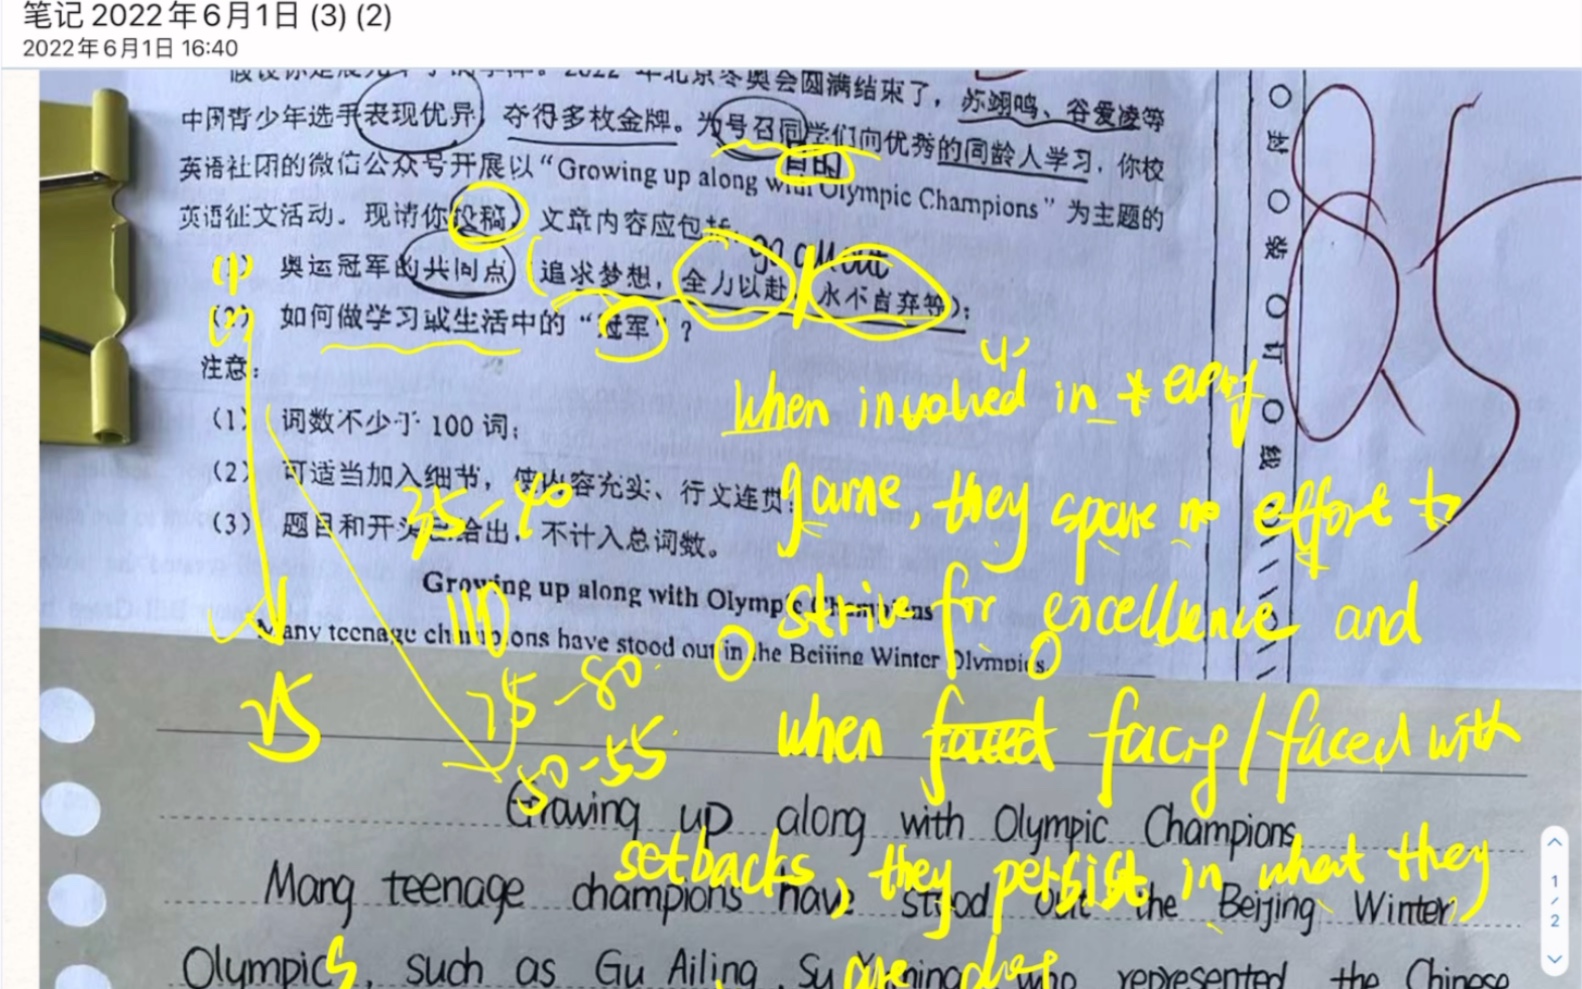 笔记 2022年6月1日 (3) (2)
2022年6月1日 16:40
年北京冬奥会圆满结束了，苏翊鸣、谷爱凌等
中国青少年选手表现优异，夺得多枚金牌。为号召同学们向优秀的同龄人学习，你校
目的
英语社团的微信公众号开展以“Growing up along with Olympic Champions”为主题的
英语征文活动。现请你投稿，文章内容应包括：
go all out
(1) 奥运冠军的共同点（追求梦想，全力以赴，永不言弃等）；
(2) 如何做学习或生活中的“冠军”？
注意：
(1) 词数不少于 100 词；
(2) 可适当加入细节，使内容充实、行文连贯；
(3) 题目和开头已给出，不计入总词数。
Growing up along with Olympic Champions
Many teenage champions have stood out in the Beijing Winter Olympics.
封
装
订
线
When involved in every
game, they spare no effort to
strive for excellence and
when faced facing/faced with
setbacks, they persist in what they
are
35-40
110
25
75-80
50-55
Growing up along with Olympic Champions
Mang teenage champions have stood out the Beijing Winter
Olympics, such as Gu Ailing, Su who represented the Chinese
1/2